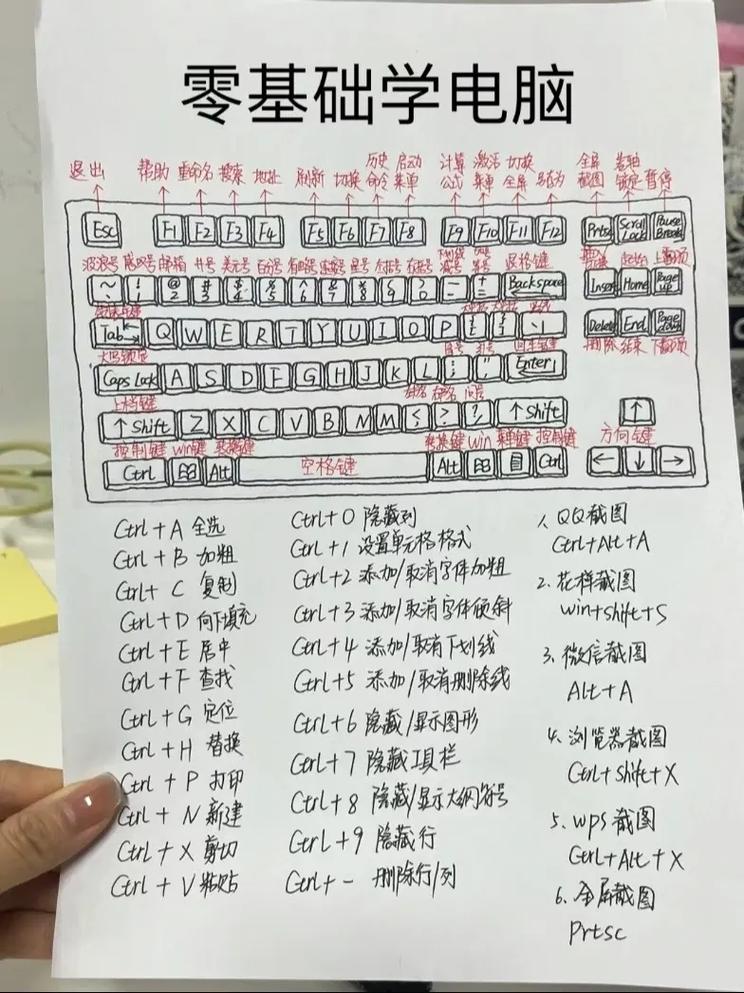 零基础学电脑
退出 帮助 重命名 搜索 地址 刷新 切换 历史命令 启动菜单 计算公式 激活菜单 切换全屏 另存为 全屏截图 卷轴锁定 暂停
Esc F1 F2 F3 F4 F5 F6 F7 F8 F9 F10 F11 F12 Prtsc Scroll Lock Pause Break
波浪号 感叹号 邮箱 井号 美元号 百分号 星号 左括号 右括号 退格键 起始 上翻页
~ ` ! 1 @ 2 # 3 $ 4 % 5 ^ 6 & 7 * 8 ( 9 ) 0 — - + = Backspace Insert Home Page up
Tab Q W E R T Y U I O P { [ } ] | \ Delete End Page down
大写锁定 冒号 引号 回车键 删除 结束 下翻页
Caps Lock A S D F G H J K L : ; " ' Enter
上档键 问号
↑ Shift Z X C V B N M < > ? / ↑ Shift ↑
控制键 Win键 替换键 替换键 Win 菜单键 控制键 方向键
Ctrl Alt 空格键 Alt Ctrl ← ↓ →
Ctrl + A 全选
Ctrl + B 加粗
Ctrl + C 复制
Ctrl + D 向下填充
Ctrl + E 居中
Ctrl + F 查找
Ctrl + G 定位
Ctrl + H 替换
Ctrl + P 打印
Ctrl + N 新建
Ctrl + X 剪切
Ctrl + V 粘贴
Ctrl + 0 隐藏列
Ctrl + 1 设置单元格格式
Ctrl + 2 添加/取消字体加粗
Ctrl + 3 添加/取消字体倾斜
Ctrl + 4 添加/取消下划线
Ctrl + 5 添加/取消删除线
Ctrl + 6 隐藏/显示图形
Ctrl + 7 隐藏工具栏
Ctrl + 8 隐藏/显示大纲符号
Ctrl + 9 隐藏行
Ctrl + - 删除行/列
1. QQ截图
Ctrl+Alt+A
2. 花样截图
Win+Shift+S
3. 微信截图
Alt+A
4. 浏览器截图
Ctrl+Shift+X
5. WPS截图
Ctrl+Alt+X
6. 全屏截图
Prtsc